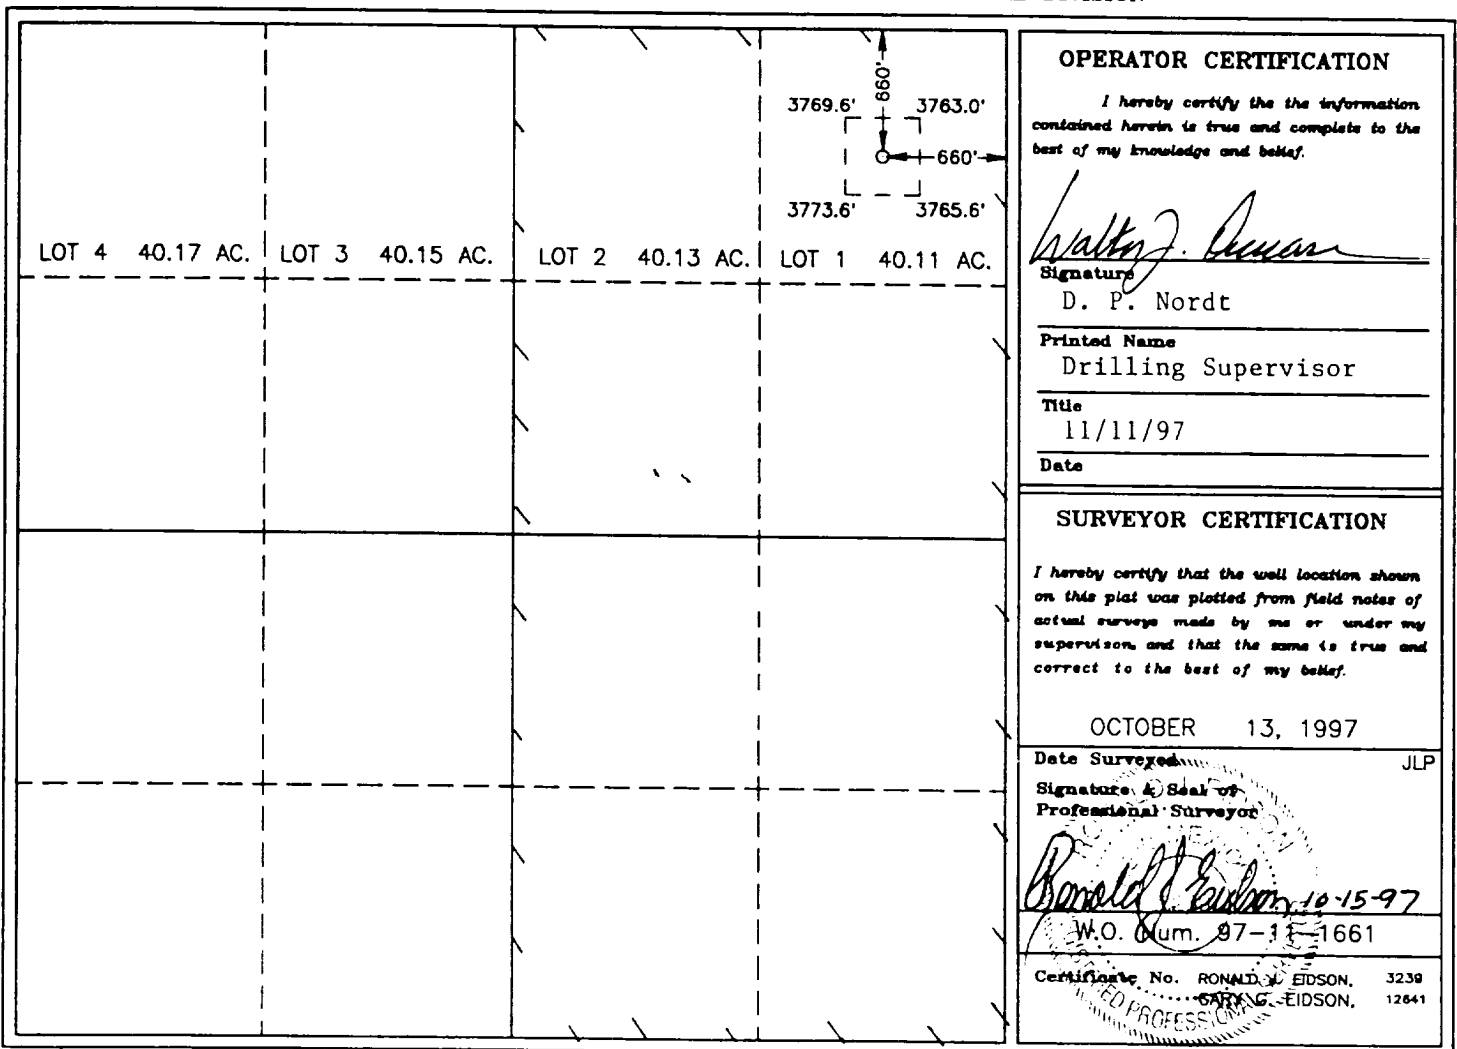 660'
3769.6' 3763.0'
660'
3773.6' 3765.6'
LOT 4 40.17 AC. LOT 3 40.15 AC. LOT 2 40.13 AC. LOT 1 40.11 AC.
OPERATOR CERTIFICATION
I hereby certify the the information
contained herein is true and complete to the
best of my knowledge and belief.
Signature
D. P. Nordt
Printed Name
Drilling Supervisor
Title
11/11/97
Date
SURVEYOR CERTIFICATION
I hereby certify that the well location shown
on this plat was plotted from field notes of
actual surveys made by me or under my
supervison, and that the same is true and
correct to the best of my belief.
OCTOBER 13, 1997
Date Surveyed JLP
Signature & Seal of
Professional Surveyor
Ronald J Eidson 10-15-97
W.O. Num. 97-11-1661
Certificate No. RONALD J. EIDSON, 3239
GARY G. EIDSON, 12641
PROFESSIONAL